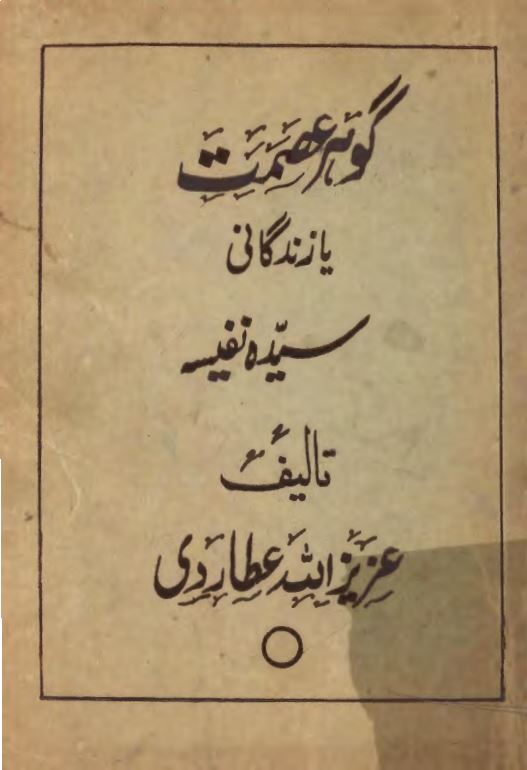 گوهر عصمت
یا زندگانی
سیّده نفیسه
تالیف
عزیزالله عطاردی